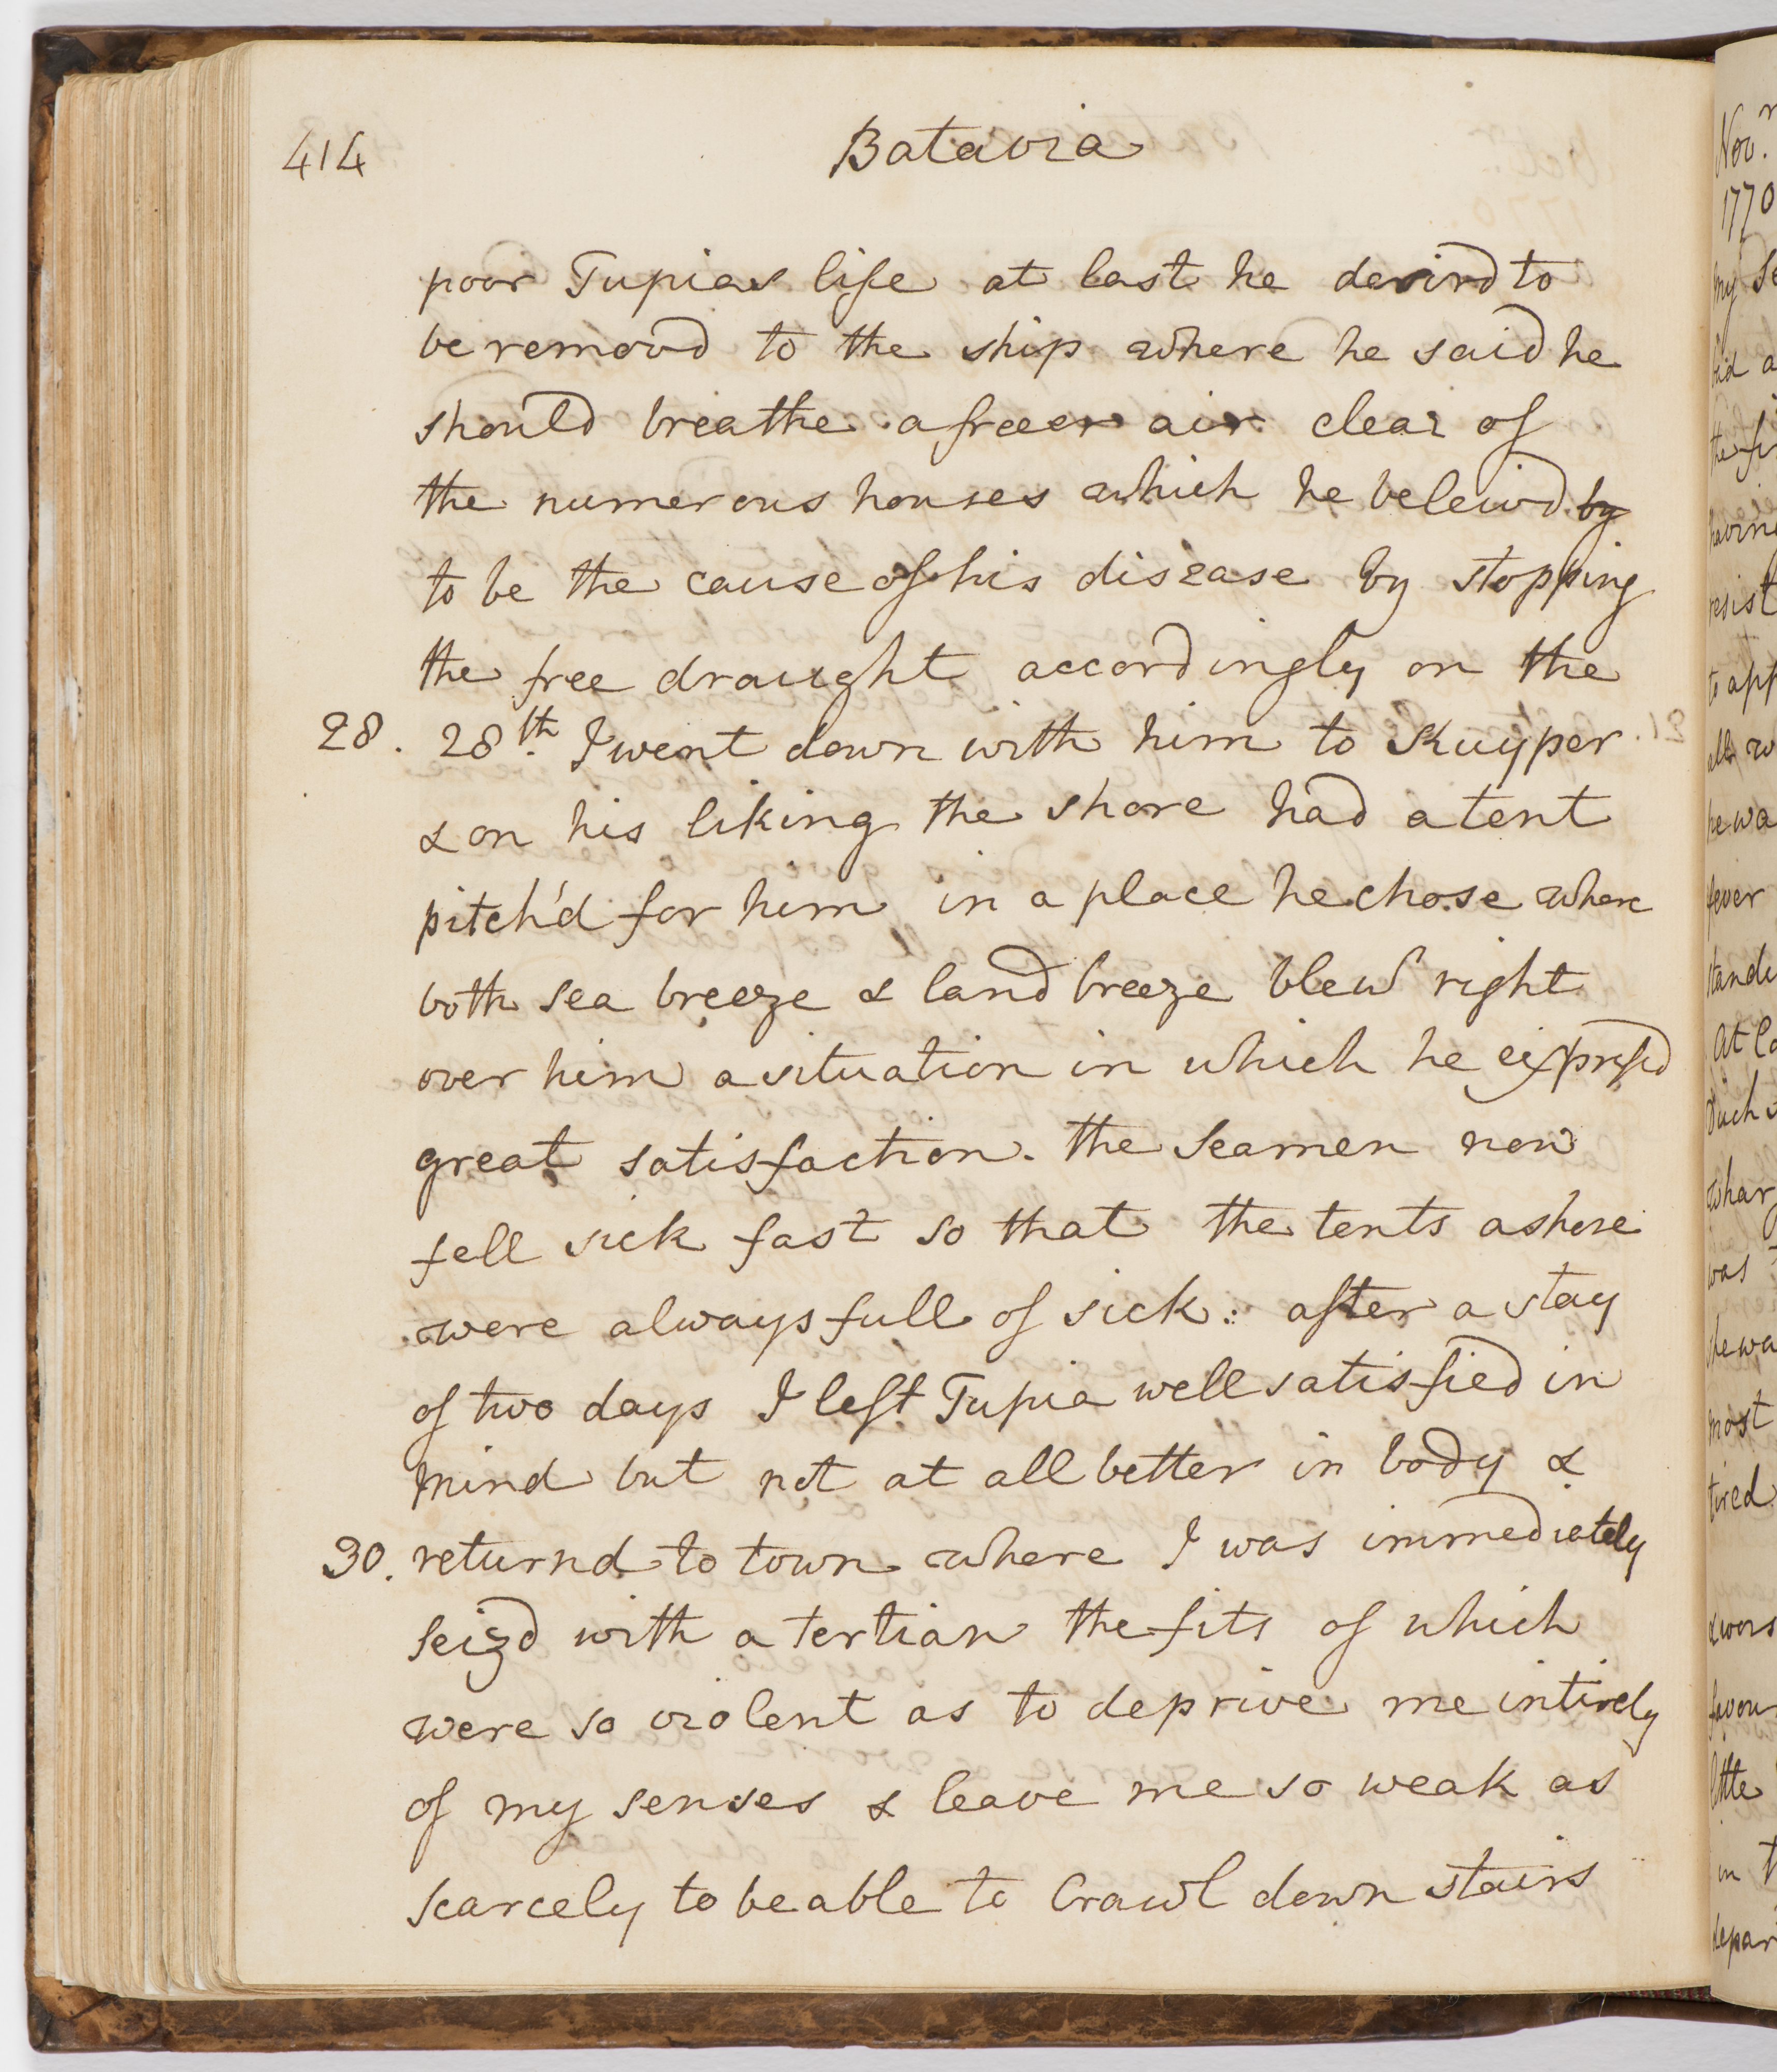 414
Batavia
poor Tupias life at last he desird to
be remov'd to the ship where he said he
should breathe a freer air clear of
the numerous houses which he beleivd by
to be the cause of his disease by stopping
the free draught accordingly on the
28. 28th. I went down with him to Kuyper
& on his liking the shore had a tent
pitch'd for him in a place he chose where
both sea breeze & land breeze blew right
over him a situation in which he expressd
great satisfaction. the Seamen now
fell sick fast so that the tents ashore
were always full of sick: after a stay
of two days I left Tupia well satisfied in
mind but not at all better in body &
30. returnd to town where I was immediately
seizd with a tertian the fits of which
were so violent as to deprive me intirely
of my senses & leave me so weak as
scarcely to be able to Crawl down stairs
Novr.
1770
my
the
having
resist
to
all
he wa
fever
At
was
she wa
most
tired
little
in